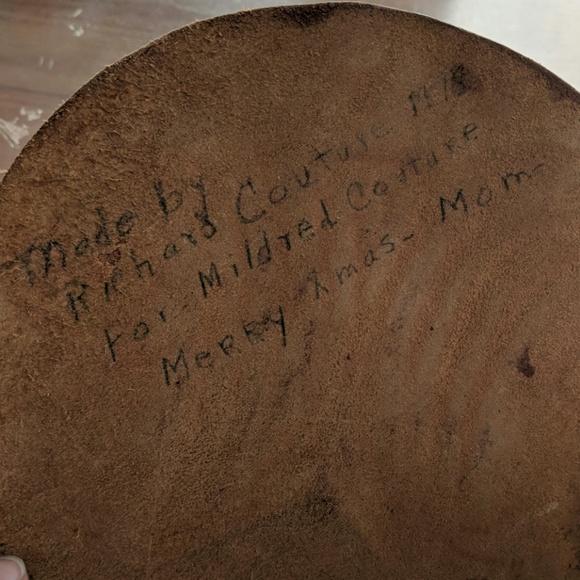 Made by
Richard Couture
For Mildred Couture
Merry Xmas- Mom-